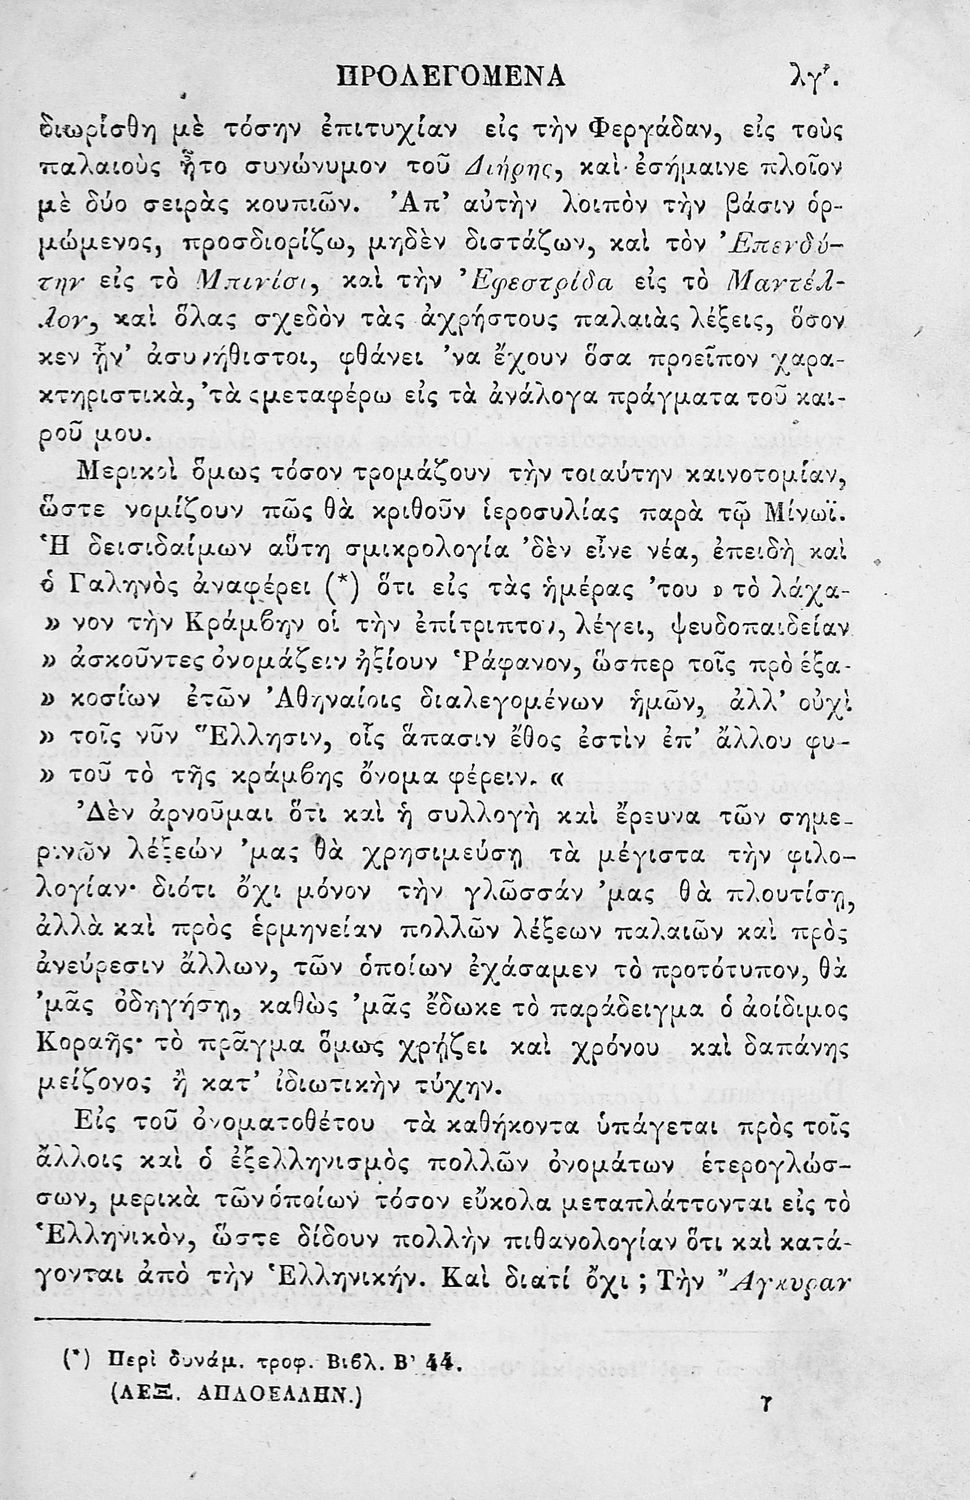 ΠΡΟΛΕΓΟΜΕΝΑ λγ΄.
διωρίσθη μὲ τόσην ἐπιτυχίαν εἰς τὴν Φεργάδαν, εἰς τοὺς
παλαιοὺς ἦτο συνώνυμον τοῦ Διήρης, καὶ ἐσήμαινε πλοῖον
μὲ δύο σειρὰς κουπιῶν. Ἀπ' αὐτὴν λοιπὸν τὴν βάσιν ὁρ-
μώμενος, προσδιορίζω, μηδὲν διστάζων, καὶ τὸν Ἐπενδύ-
την εἰς τὸ Μπινίσι, καὶ τὴν Ἐφεστρίδα εἰς τὸ Μαντέλ-
λον, καὶ ὅλας σχεδὸν τὰς ἀχρήστους παλαιὰς λέξεις, ὅσον
κεν ἦν' ἀσυνήθιστοι, φθάνει 'να ἔχουν ὅσα προεῖπον χαρα-
κτηριστικὰ, 'τὰς μεταφέρω εἰς τὰ ἀνάλογα πράγματα τοῦ και-
ροῦ μου.
Μερικοὶ ὅμως τόσον τρομάζουν τὴν τοιαύτην καινοτομίαν,
ὥστε νομίζουν πῶς θὰ κριθοῦν ἱεροσυλίας παρὰ τῷ Μίνωϊ.
Ἡ δεισιδαίμων αὕτη σμικρολογία 'δὲν εἶνε νέα, ἐπειδὴ καὶ
ὁ Γαληνὸς ἀναφέρει (*) ὅτι εἰς τὰς ἡμέρας 'του » τὸ λάχα-
» νον τὴν Κράμβην οἱ τὴν ἐπίτριπτον, λέγει, ψευδοπαιδείαν
» ἀσκοῦντες ὀνομάζειν ἠξίουν Ῥάφανον, ὥσπερ τοῖς πρὸ ἑξα-
» κοσίων ἐτῶν Ἀθηναίοις διαλεγομένων ἡμῶν, ἀλλ' οὐχὶ
» τοῖς νῦν Ἕλλησιν, οἷς ἅπασιν ἔθος ἐστὶν ἐπ' ἄλλου φυ-
» τοῦ τὸ τῆς κράμβης ὄνομα φέρειν. «
'Δὲν ἀρνοῦμαι ὅτι καὶ ἡ συλλογὴ καὶ ἔρευνα τῶν σημε-
ρινῶν λέξεών 'μας θὰ χρησιμεύσῃ τὰ μέγιστα τὴν φιλο-
λογίαν· διότι ὄχι μόνον τὴν γλῶσσάν 'μας θὰ πλουτίσῃ,
ἀλλὰ καὶ πρὸς ἑρμηνείαν πολλῶν λέξεων παλαιῶν καὶ πρὸς
ἀνεύρεσιν ἄλλων, τῶν ὁποίων ἐχάσαμεν τὸ προτότυπον, θὰ
'μᾶς ὁδηγήσῃ, καθὼς 'μᾶς ἔδωκε τὸ παράδειγμα ὁ ἀοίδιμος
Κοραῆς· τὸ πρᾶγμα ὅμως χρῄζει καὶ χρόνου καὶ δαπάνης
μείζονος ἢ κατ' ἰδιωτικὴν τύχην.
Εἰς τοῦ ὀνοματοθέτου τὰ καθήκοντα ὑπάγεται πρὸς τοῖς
ἄλλοις καὶ ὁ ἐξελληνισμὸς πολλῶν ὀνομάτων ἑτερογλώσ-
σων, μερικὰ τῶν ὁποίων τόσον εὔκολα μεταπλάττονται εἰς τὸ
Ἑλληνικὸν, ὥστε δίδουν πολλὴν πιθανολογίαν ὅτι καὶ κατά-
γονται ἀπὸ τὴν Ἑλληνικήν. Καὶ διατί ὄχι ; Τὴν Ἄγκυραν
(*) Περὶ δυνάμ. τροφ. Βιβλ. Β' 44.
(ΛΕΞ. ΑΠΛΟΕΛΛΗΝ.) γ